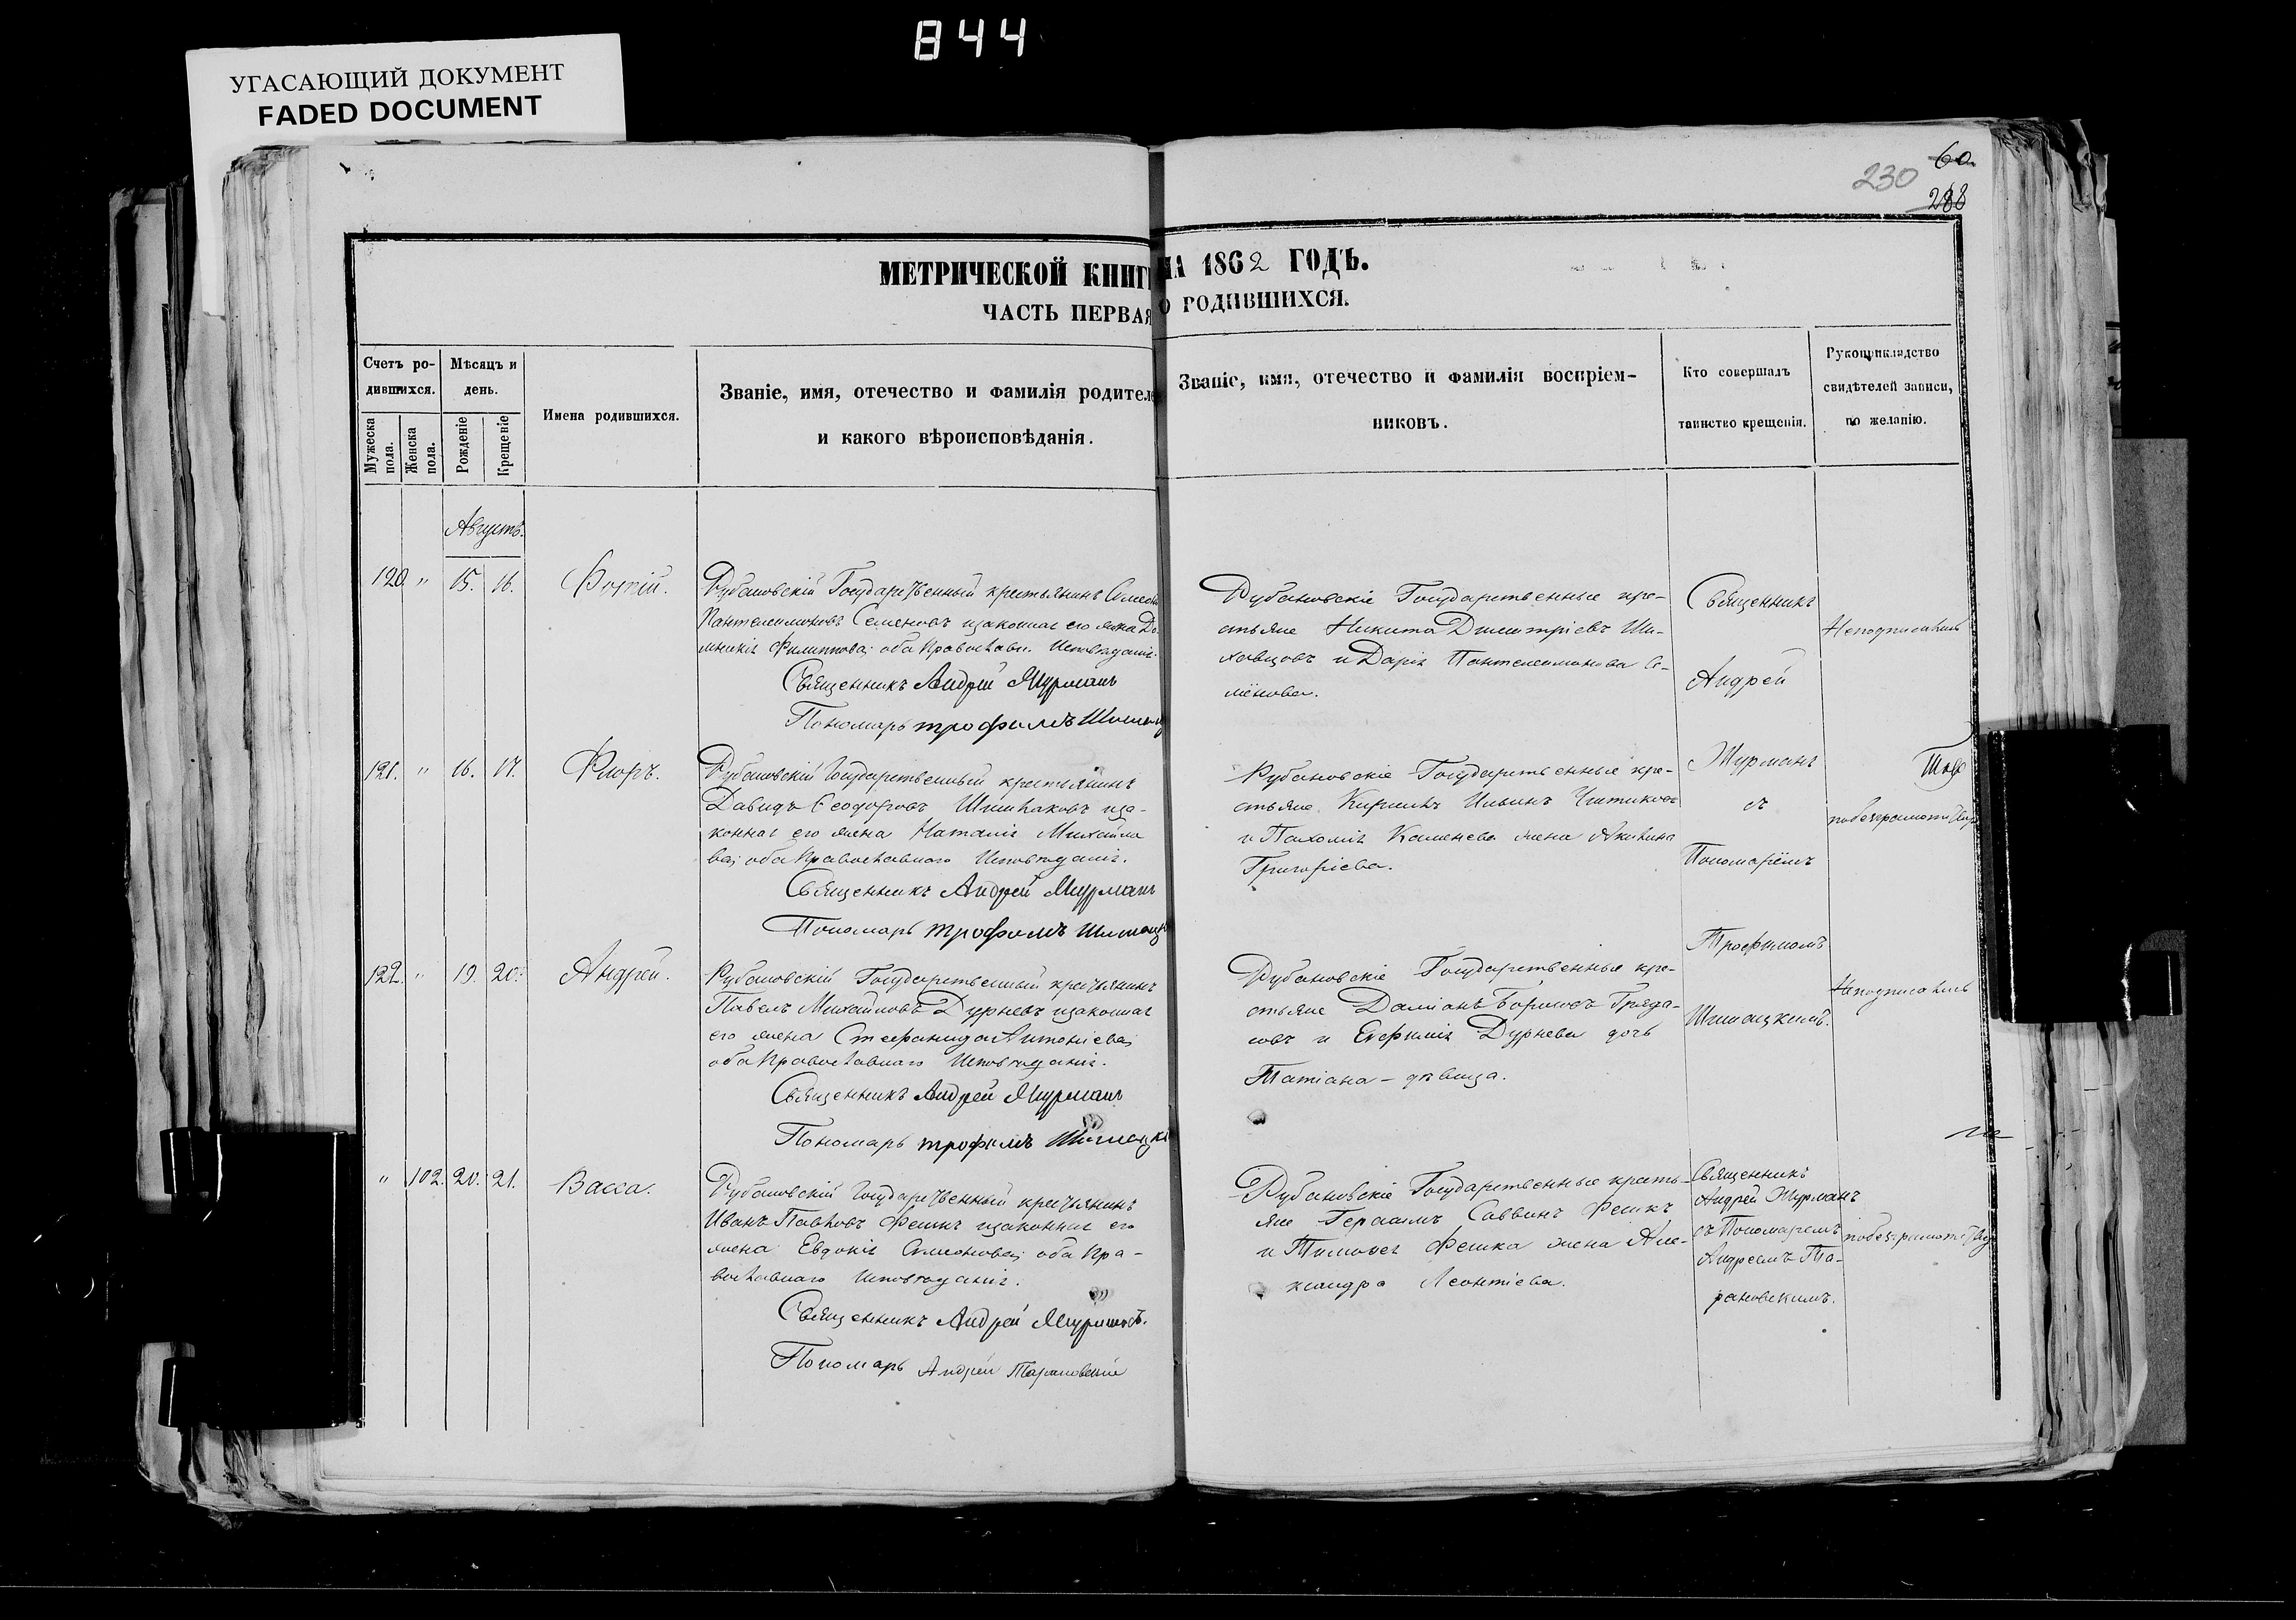 844
УГАСАЮЩИЙ ДОКУМЕНТ
FADED DOCUMENT
230
60
МЕТРИЧЕСКОЙ КНИГ НА 1862 ГОДЪ.
ЧАСТЬ ПЕРВАЯ О РОДИВШИХСЯ.
Счетъ ро-
дившихся.
Мужеска
пола.
Женска
пола.
Мѣсяцъ и
день.
Рожденіе
Крещеніе
Имена родившихся.
Званіе, имя, отечество и фамилія родителе
и какого вѣроисповѣданія.
Званіе, имя, отечество и фамилія воспріем-
никовъ.
Кто совершалъ
таинство крещенія.
Рукоприкладство
свидѣтелей записи,
по желанію.
Августъ.
120 " 15. 16.
Фотій.
Рубановскій Государственный крестьянинъ
Пантелеимоновъ Семеновъ изаконная его жена До
мникія Филиппова; оба Православн. Исповѣданія.
Священникъ Андрей Журманъ
Пономарь трофимъ
Рубановскіе Государственные кре-
стьяне Никита Димитріевъ
и Дарія Пантелеимонова Се-
мёнова.
Священникъ
Андрей
Журманъ
съ
Пономарёмъ
Трофимомъ
121. " 16. 17.
Флоръ.
Рубановскій Государственный крестьянинъ
Давидъ Ѳеодоровъ иза-
конная его жена Наталія Михайло
ва; оба Православнаго Исповѣданія.
Священникъ Андрей Журманъ
Пономарь трофимъ
Рубановскіе Государственные кре-
стьяне Кириллъ Ильинъ
и Пахомія Каменева жена Акилина
Григоріева.
122. " 19. 20.
Андрей.
Рубановскій Государственный крестьянинъ
Павелъ Михайловъ Дурневъ изаконная
его жена Стефанида Антоніева;
оба Православнаго Исповѣданія.
Священникъ Андрей Журманъ
Пономарь трофимъ
Рубановскіе Государственные кре-
стьяне Даміанъ Борисовъ
и Евфимія Дурнева дочь
Татіана - дѣвица.
" 102. 20. 21.
Васса.
Рубановскій Государственный крестьянинъ
Иванъ Павловъ изаконная его
жена Евдокія Симеонова; оба Пра-
вославнаго Исповѣданія.
Священникъ Андрей Журманъ.
Пономарь Андрей Тарановскій
Рубановскіе Государственные кресть-
яне Герасимъ Саввинъ
и жена Але-
ксандра Леонтіева.
Священникъ
Андрей Журманъ
съ Пономаремъ
Андреемъ Та-
рановскимъ.